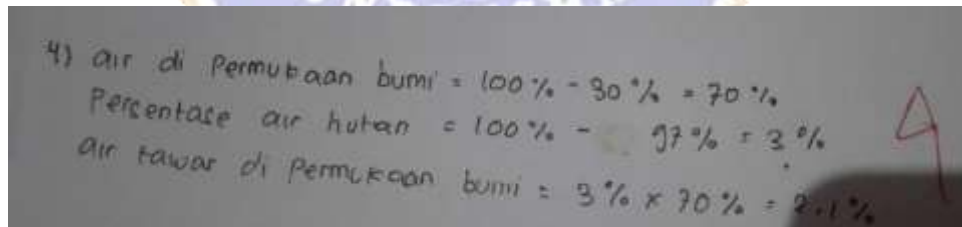 4) air di Permukaan bumi = 100% - 30% = 70%
Persentase air hutan = 100% - 97% = 3%
air tawar di Permukaan bumi = 3% x 70% = 2.1%
4